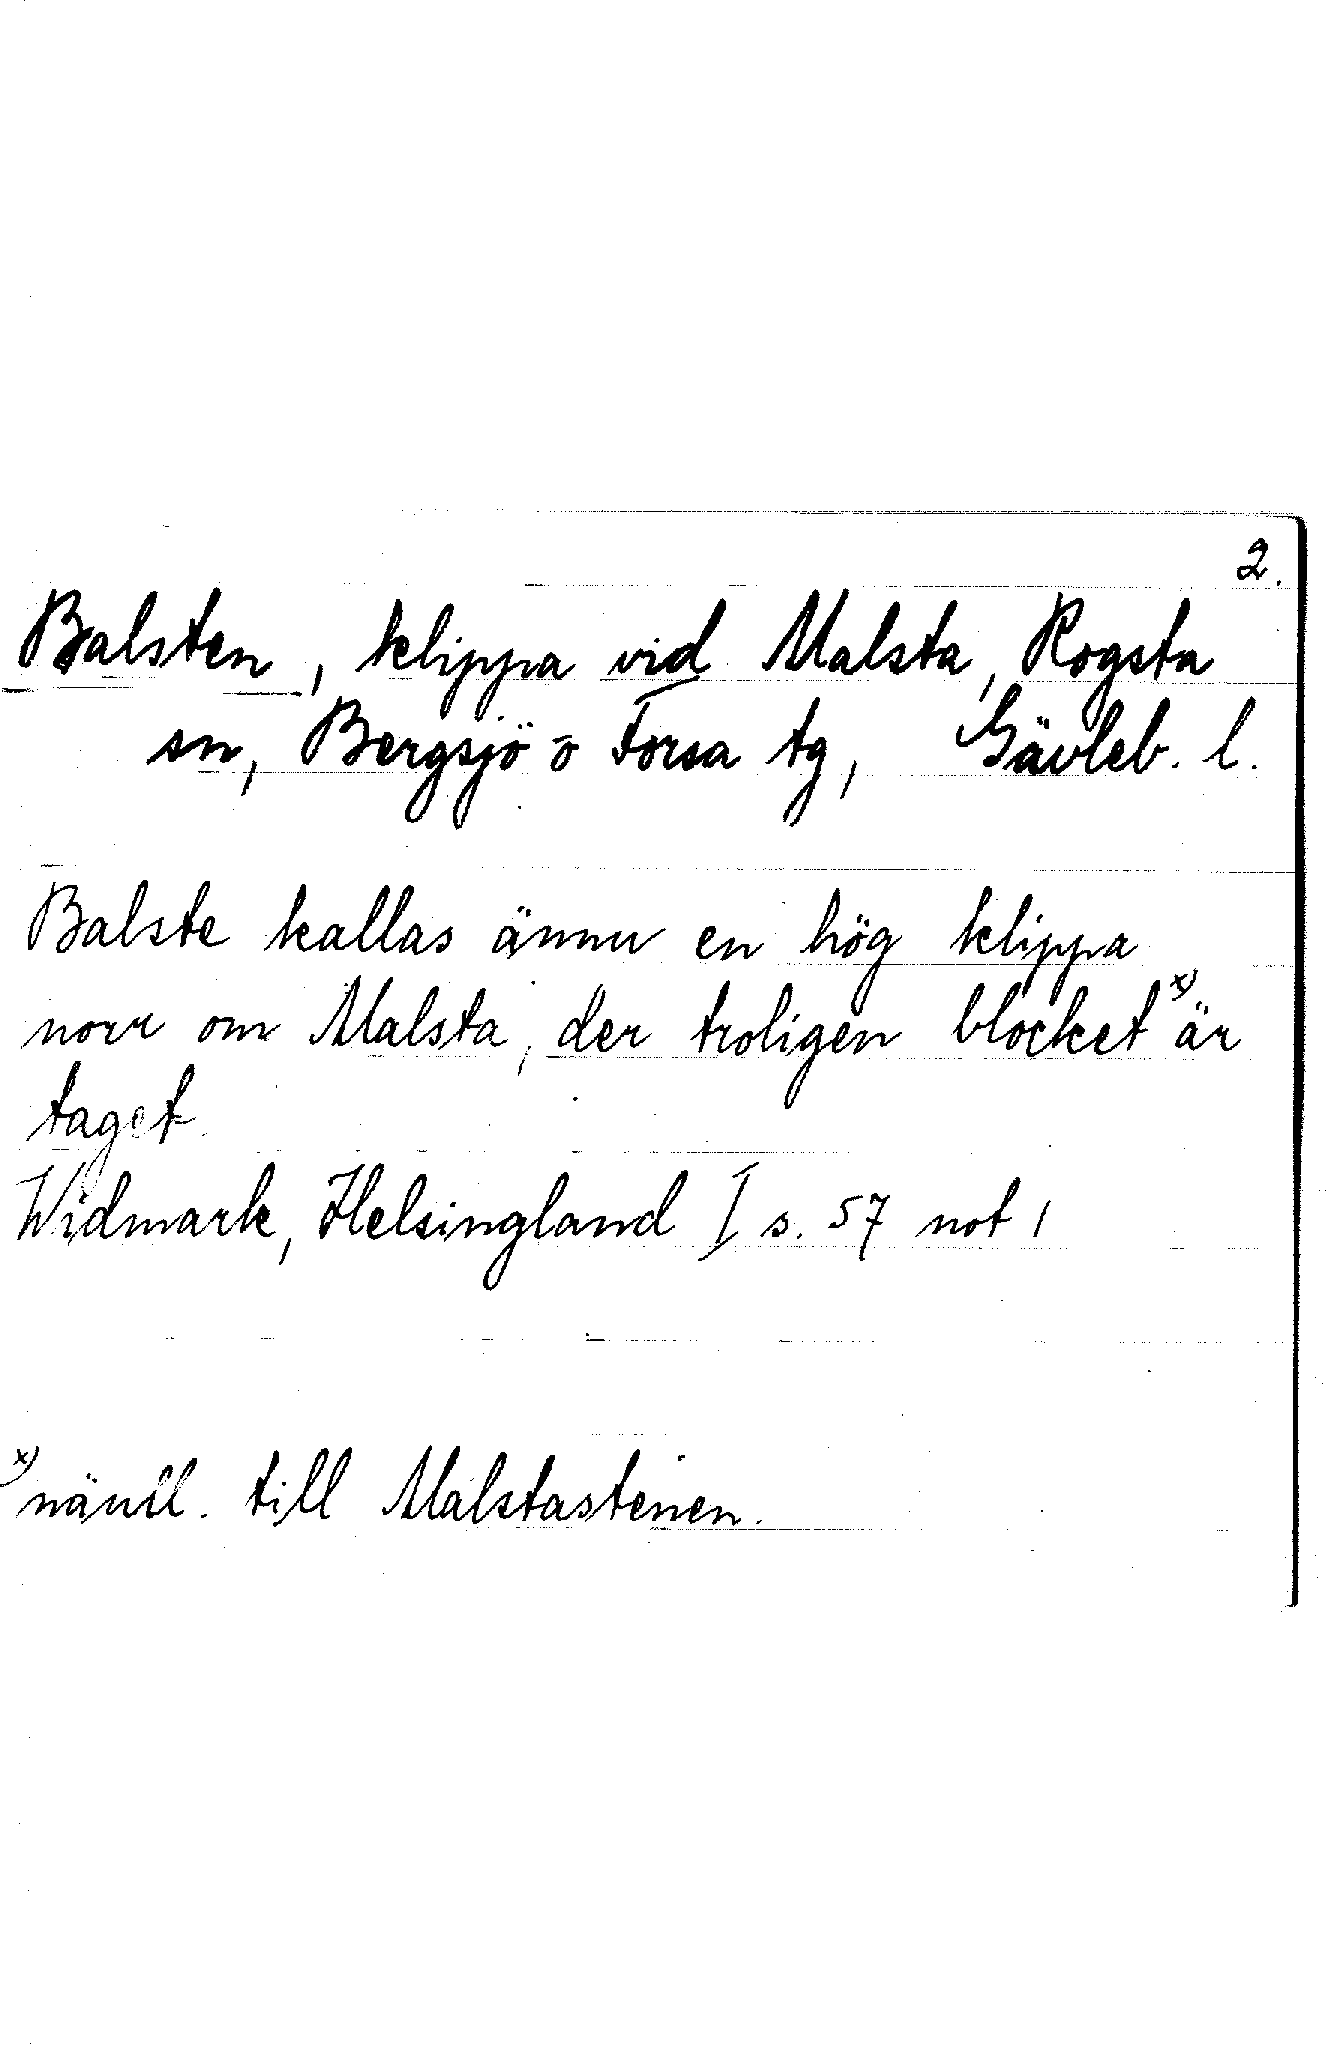 2.
Balsten, klippa vid Malsta, Rogsta
sn, Bergsjö o Forsa tg, Gävleb. l.
Balste kallas ännu en hög klippa
norr om Malsta, der troligen blocket x) är
taget.
Widmark, Helsingland I s. 57 not 1
x) nämll. till Malstastenen.